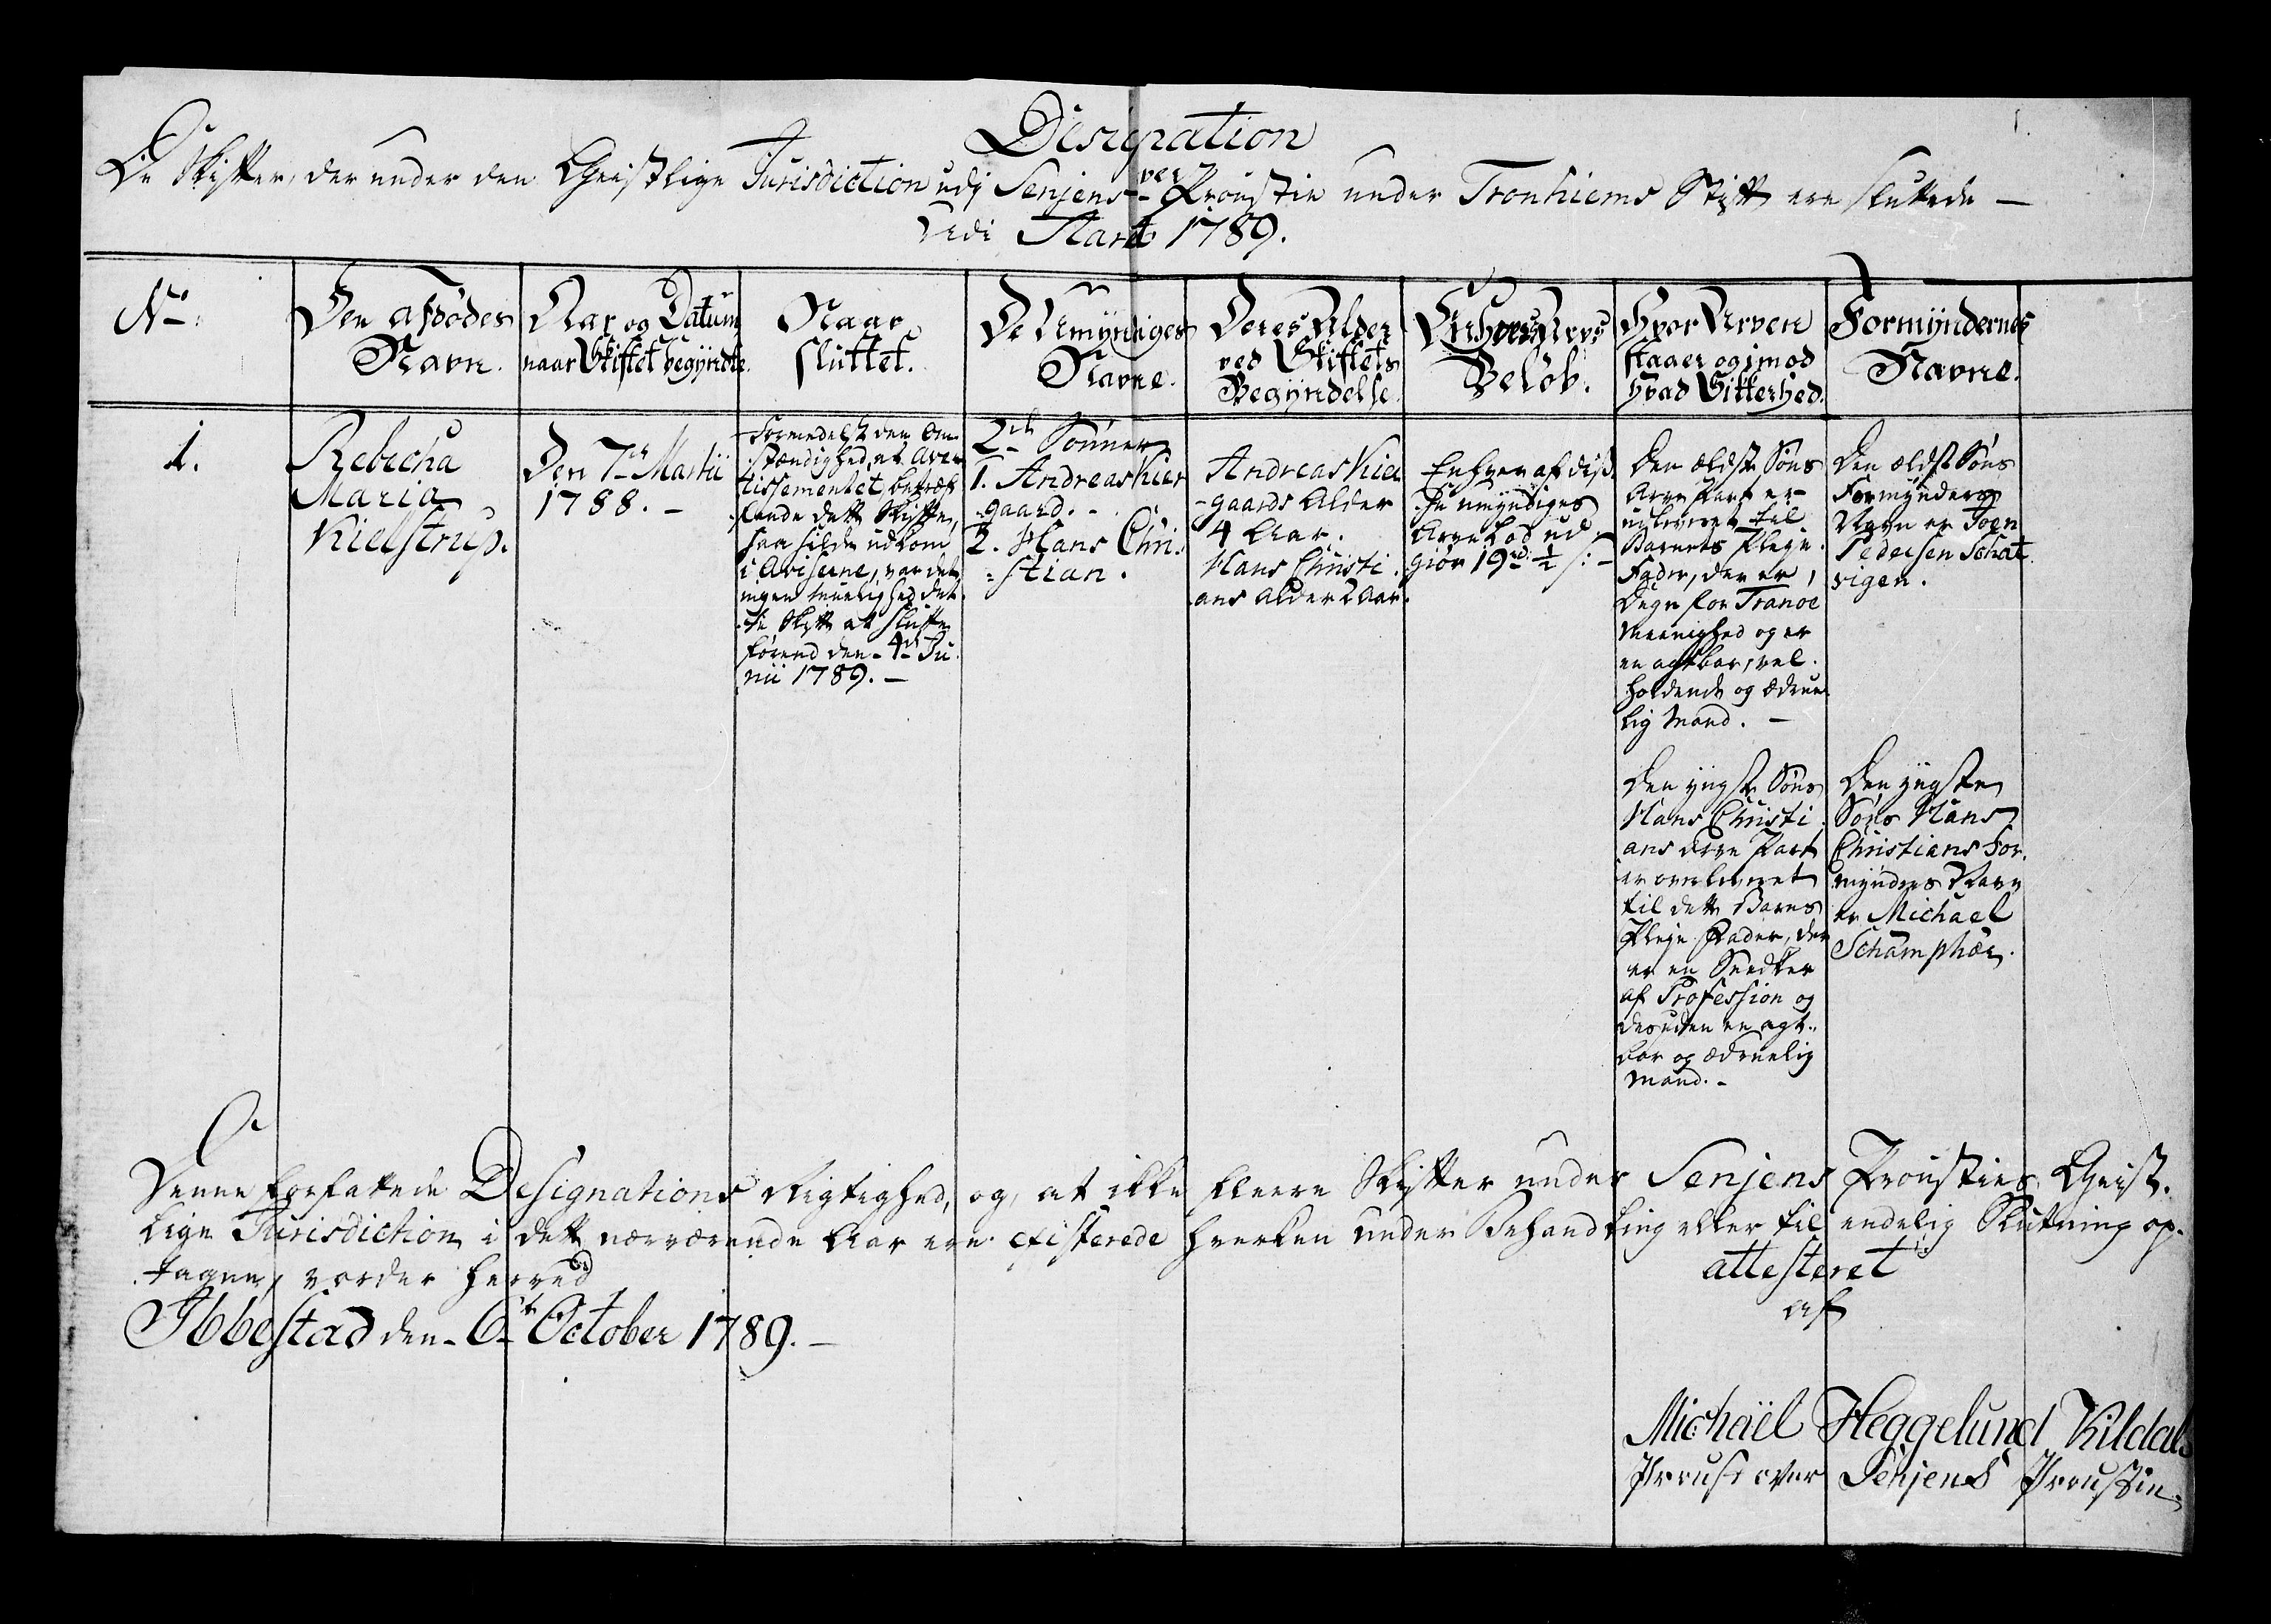 Designation
over
De Skifter, der under den Geistlige Jurisdiction udj Senjens Proustie under Tronhiems Stift ere sluttede —
udi Aaret 1789.
No.
Den afdødes
Navn.
Aar og Datum
naar Skiftet begyndte.
Naar
sluttet.
De Umyndiges
Navne.
Deres Alder
ved Skiftets
Begyndelse.
Enhvers Arvs
Beløb.
Hvor Arven
staaer og imod
hvad Sikkerhed.
Formyndernes
Navne.
1.
Rebecha
Maria
Kielstrup.
Den 7de Martii
1788. —
Formedelst den Om-
stændighed, at Aver
tissementet, betref-
fende dette Skifte,
saa silde udkom
i Aviserne, var der
ingen muelighed det-
te Skifte at slutte
førend den 4de Ju
nii 1789. —
2de Sønner
1. Andreas Kier
gaard. -
2. Hans Chri-
=stian.
Andreas Kier
-gaards Alder
4 Aar.
Hans Christi
ans Alder 2 Aar.
Enhver af diss-
se umyndiges
Arve Lod ud
giør 19rd: ½ s: -
Den ældste Søns
Arve Part er
udleveret til
Barnets Pleje-
Fader, der er
Degn for Tranøe
Meenighed og er
en agtbar, vel-
holdende og ædrue
lig Mand. —
Den yngste Søns
Hans Christi
ans Arve Part
er overleveret
til dette Barns
Pleje Fader, der
er en Snedker
af Profession og
desuden en agt-
bar og ædruelig
Mand. -
Den ældste Søns
Formynders
Navn er Toen
Pedersen Schat
vigen.
Den yngste
Søns Hans
Christians For-
mynders Navn
er Michael
Schamphær.
Denne forfattede Designations Rigtighed, og, at ikke fleere Skifter under Senjens Prousties Geist-
lige Jurisdiction i dette nærværende Aar ere existerede hverken under Behandling eller til endelig Slutning op-
tagne, vorder herved attesteret
af
Ibbestad den 6te October 1789. —
Michaël Heggelund Kildal
Proust over Senjens Proustie.